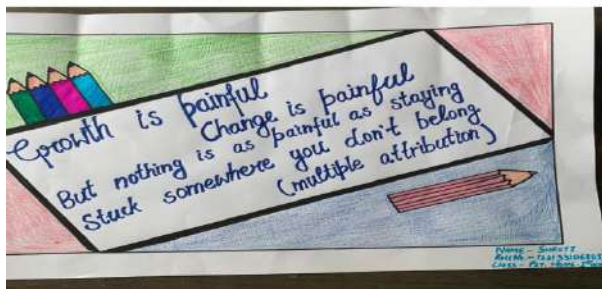 Growth is painful
Change is painful
But nothing is as painful as staying
Stuck somewhere you don't belong
(multiple attribution)
NAME - SHRUTI